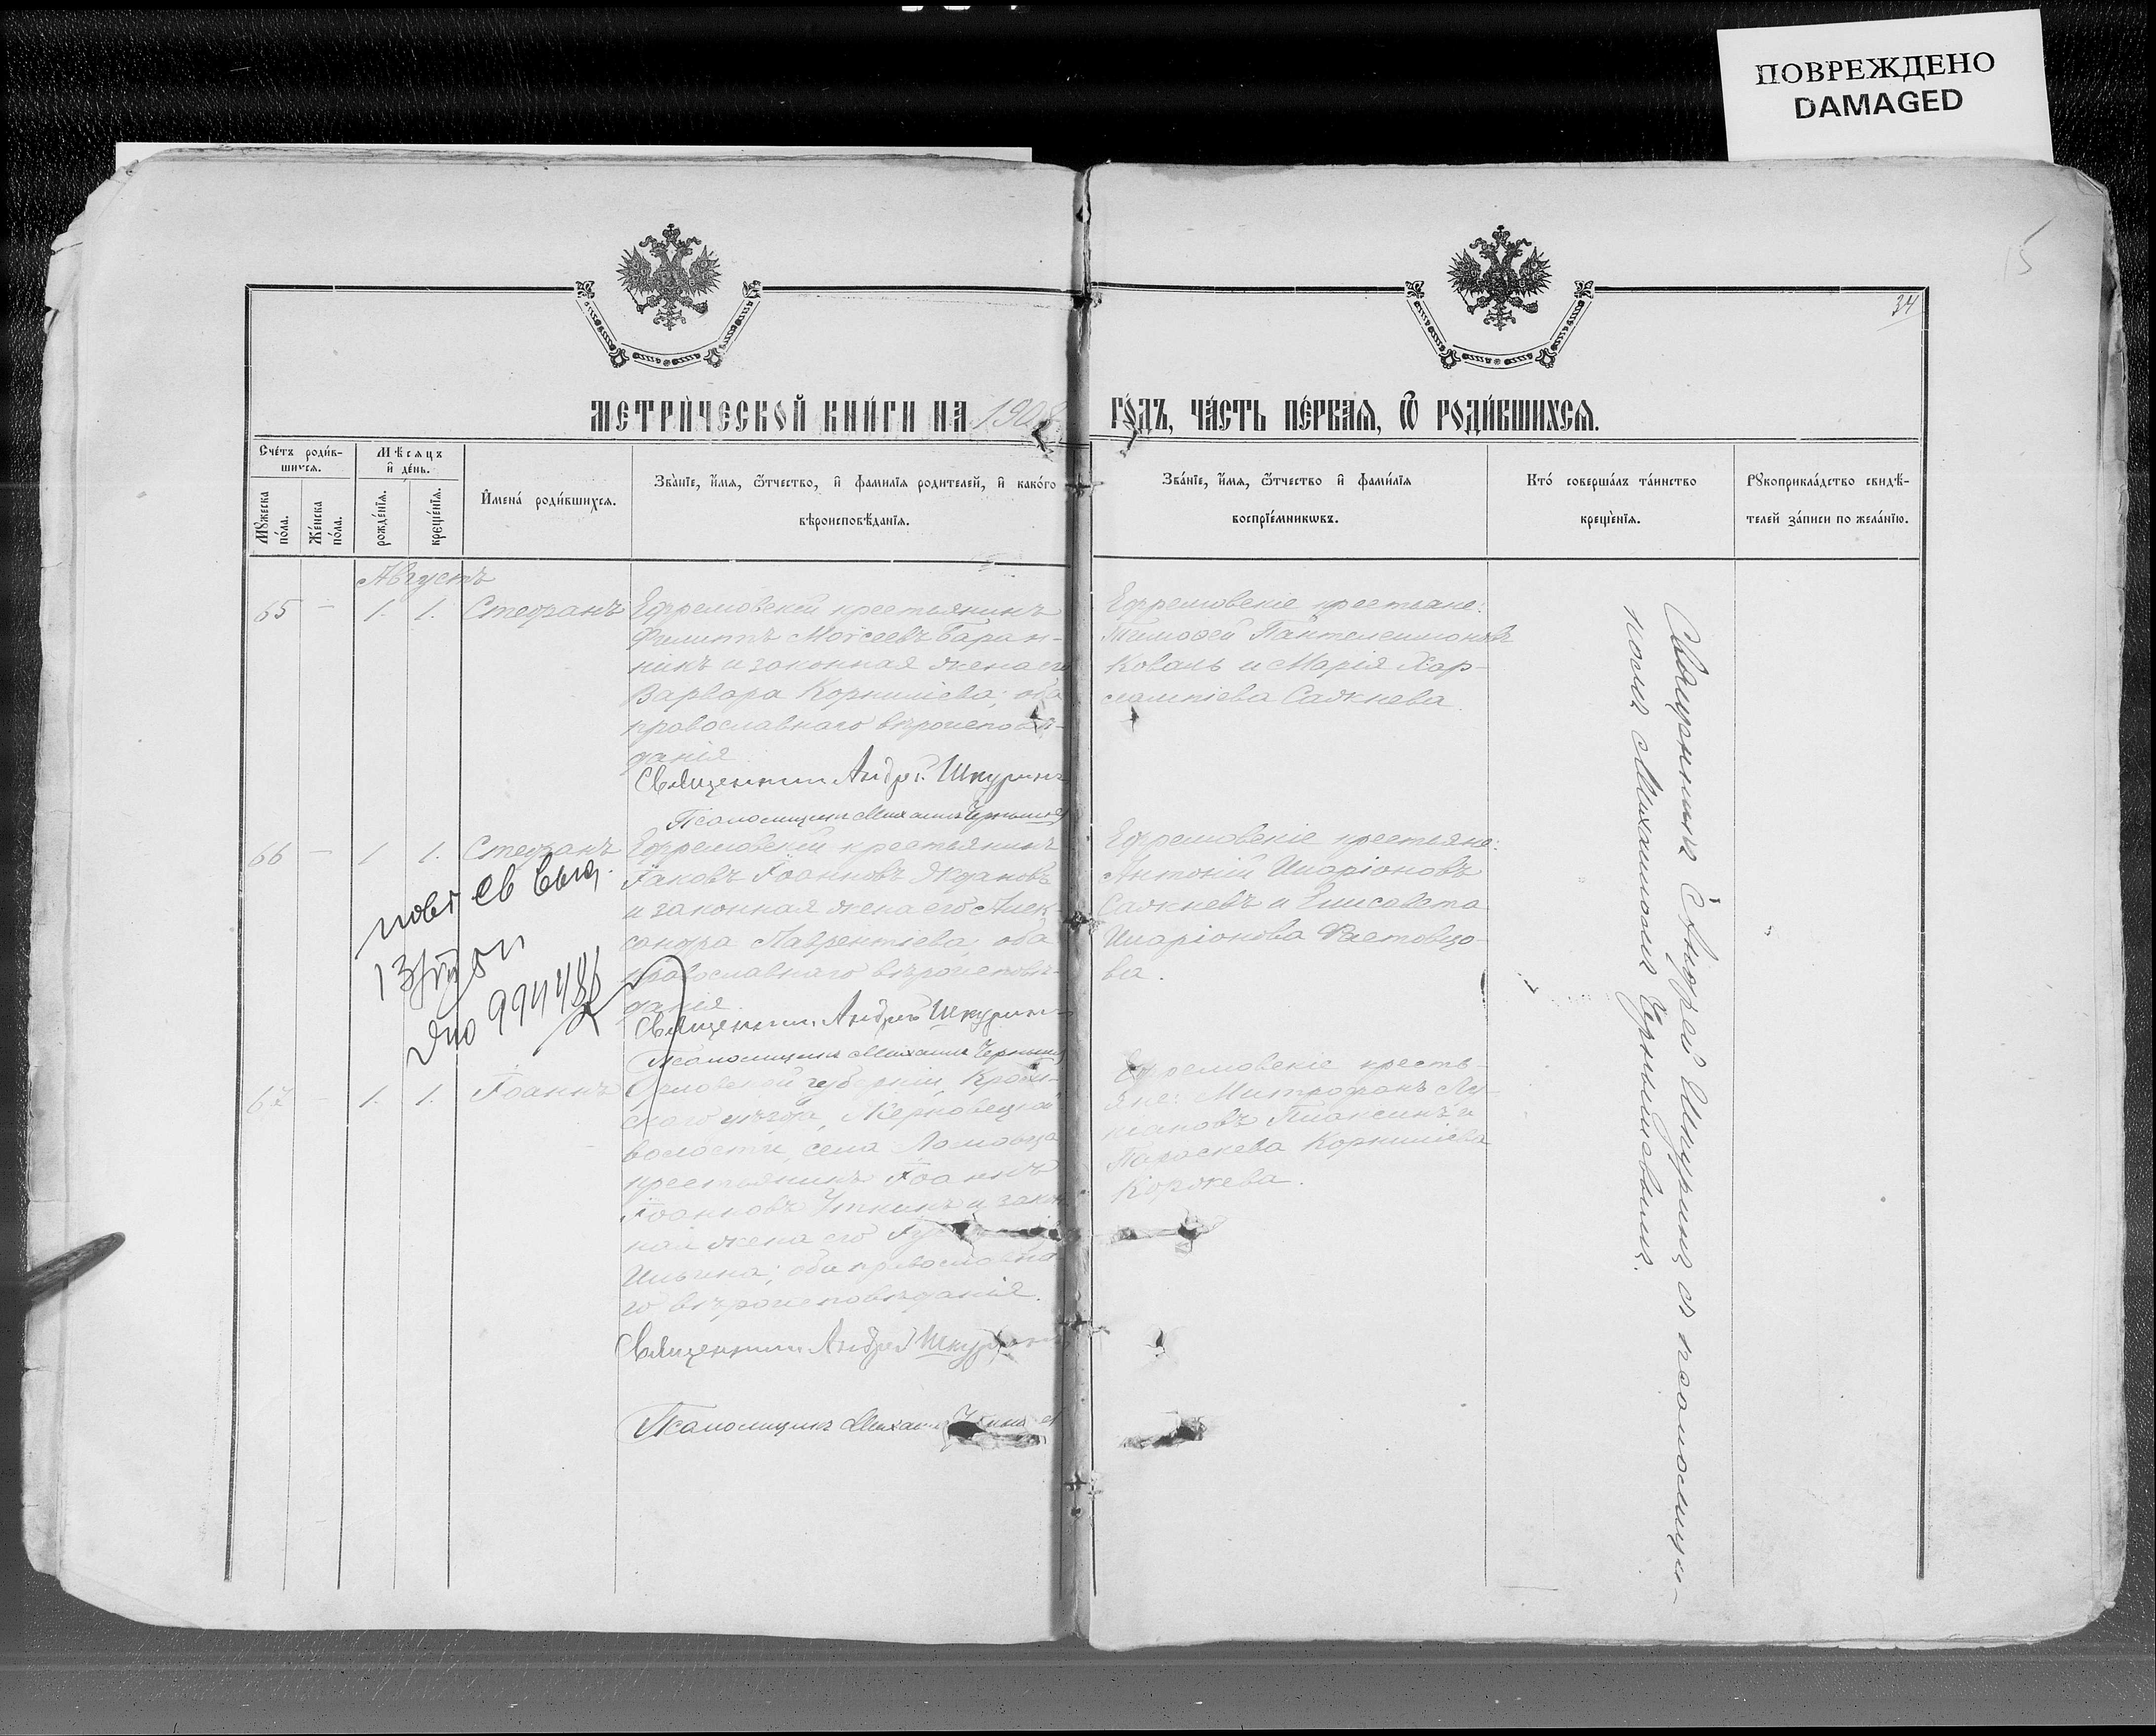 ПОВРЕЖДЕНО
DAMAGED
15
34
МЕТРИ́ЧЕСКОЙ КНИ́ГИ НА 1908
ГО́ДЪ, ЧА́СТЬ ПЕ́РВАѦ, Ѿ РОДИ́ВШИХСѦ.
Сче́тъ роди́в-
шихсѧ.
Мꙋ́жеска по́ла.
Же́нска по́ла.
Мѣ́сѧцъ
и҆ де́нь.
рожде́нїѧ.
креще́нїѧ.
И҆мена̀ роди́вшихсѧ.
Зва́нїе, и҆́мѧ, ѻ҆́тчество, и҆ фами́лїѧ родителей, и҆ како́го
вѣроисповѣ́данїѧ.
Зва́нїе, и҆́мѧ, ѻ҆́тчество и҆ фами́лїѧ
воспрїе́мникѡвъ.
Кто́ соверша́лъ та́инство
креще́нїѧ.
Рꙋкоприкла́дство свидѣ́-
телей за́писи по жела́нїю.
Августъ
65 - 1. 1. Стефанъ
Ефремовскій крестьянинъ
Филиппъ Моѵсеевъ Баран-
никъ и законная жена его
Варвара Корниліева; оба
православнаго вѣроисповѣ-
данія.
Священникъ Андрей Шкуринъ
Псаломщикъ Михаилъ Чернышевъ
Ефремовскіе крестьяне:
Тимоѳей Пантелеимоновъ
Коваль и Марія Хар-
лампіева Сажнева.
66 - 1 1. Стефанъ
Ефремовскій крестьянинъ
Іаковъ Іоанновъ Ждановъ
и законная жена его Алек-
сандра Лаврентіева, оба
православнаго вѣроисповѣ-
данія.
Священникъ Андрей Шкуринъ
Псаломщикъ Михаилъ Чернышевъ
Ефремовскіе крестьяне:
Антоній Иларіоновъ
Сажневъ и Елисавета
Иларіонова Растовцо-
ва.
св выд.
994486
67 - 1. 1. Іоаннъ
Орловской губерніи, Кром-
скаго уѣзда,
волости, села Ломовца
крестьянинъ Іоаннъ
Іоанновъ Уткинъ и закон
ная жена его
Ильина; оба православна
го вѣроисповѣданія.
Священникъ Андрей Шкуринъ
Псаломщикъ Михаилъ
Ефремовскіе кресть-
яне: Митрофанъ Лу-
кіановъ Плаксинъ и
Параскева Корниліева
Коржева.
Священникъ Андрей Шкуринъ съ псаломщи-
комъ Михаиломъ Чернышевымъ.